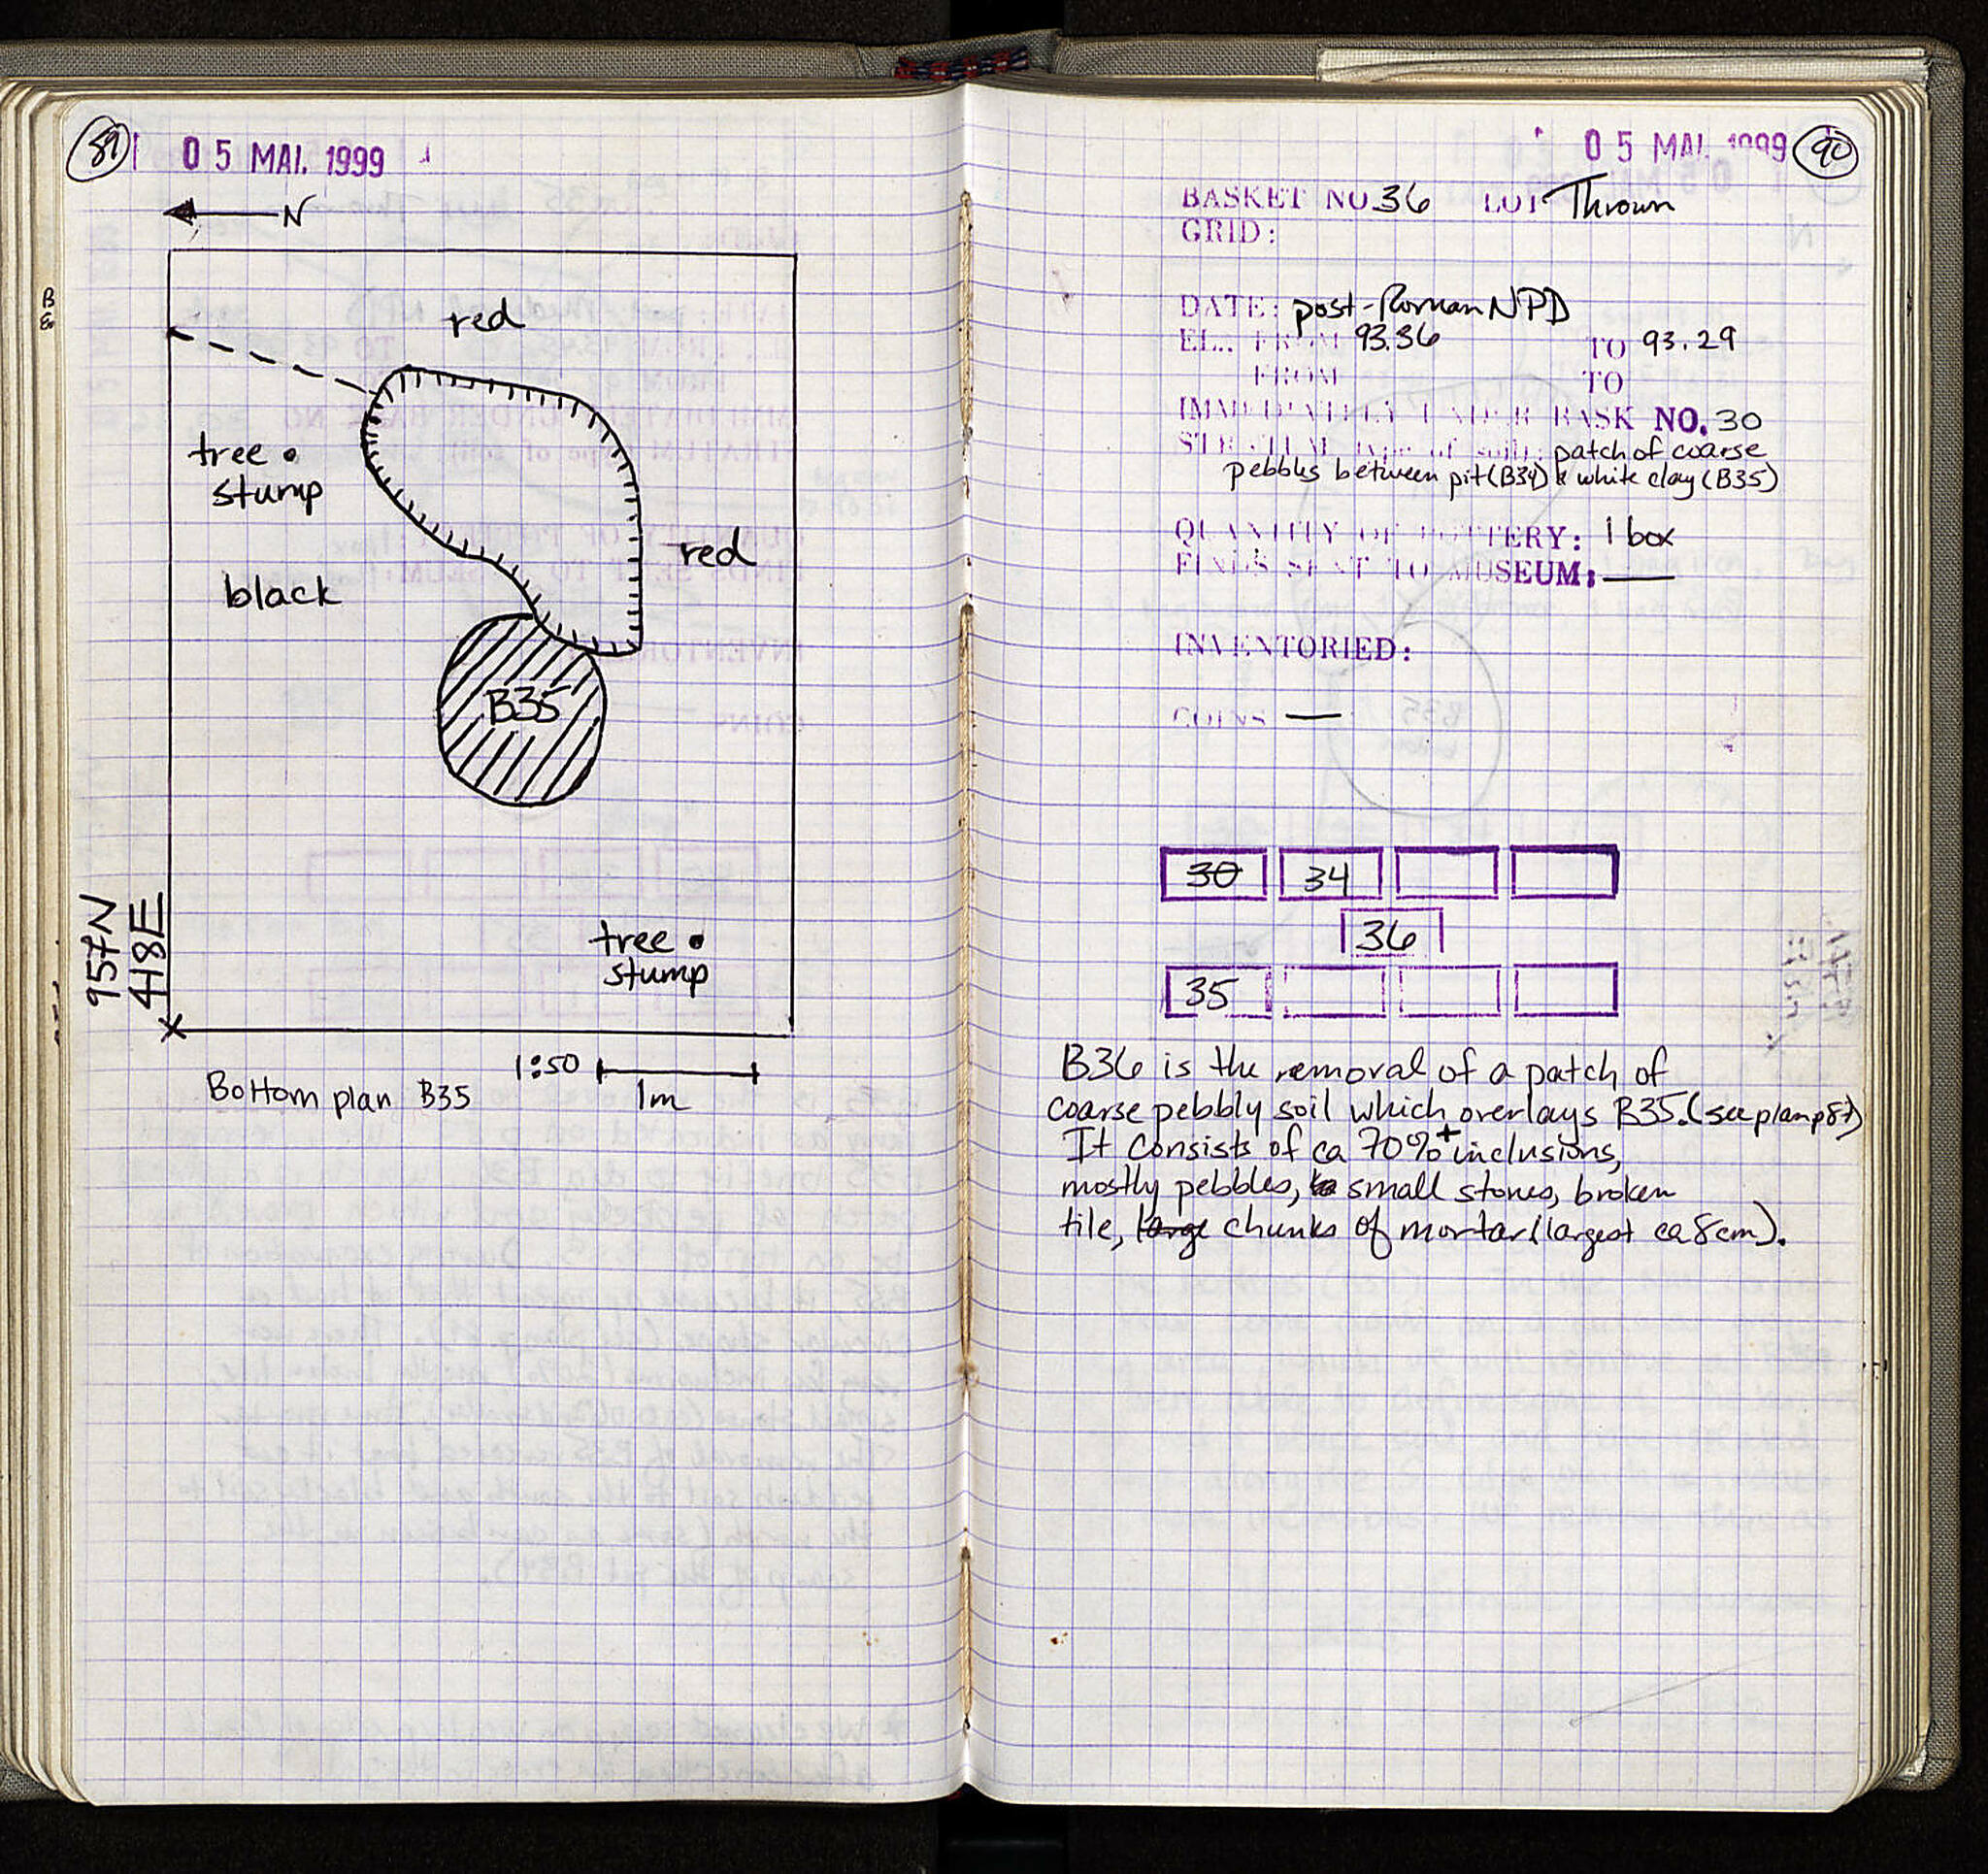 89
05 MAI. 1999
N
red
tree
stump
red
black
B35
tree
stump
957N
418E
1:50
1m
Bottom plan B35
05 MAI. 1999
90
BASKET NO 36 LOT Thrown
GRID:
DATE: post-Roman NPD
EL.. FROM 93.36 TO 93.29
FROM TO
IMMEDIATELY UNDER BASK NO. 30
STRATUM type of soil: patch of coarse
pebbles between pit (B34) & white clay (B35)
QUANTITY OF POTTERY: 1 box
FINDS SENT TO MUSEUM: —
INVENTORIED:
COINS —
30 34
36
35
B36 is the removal of a patch of
coarse pebbly soil which overlays B35. (see plan p87)
It consists of ca 70%+ inclusions,
mostly pebbles, small stones, broken
tile, large chunks of mortar (largest ca 8cm).